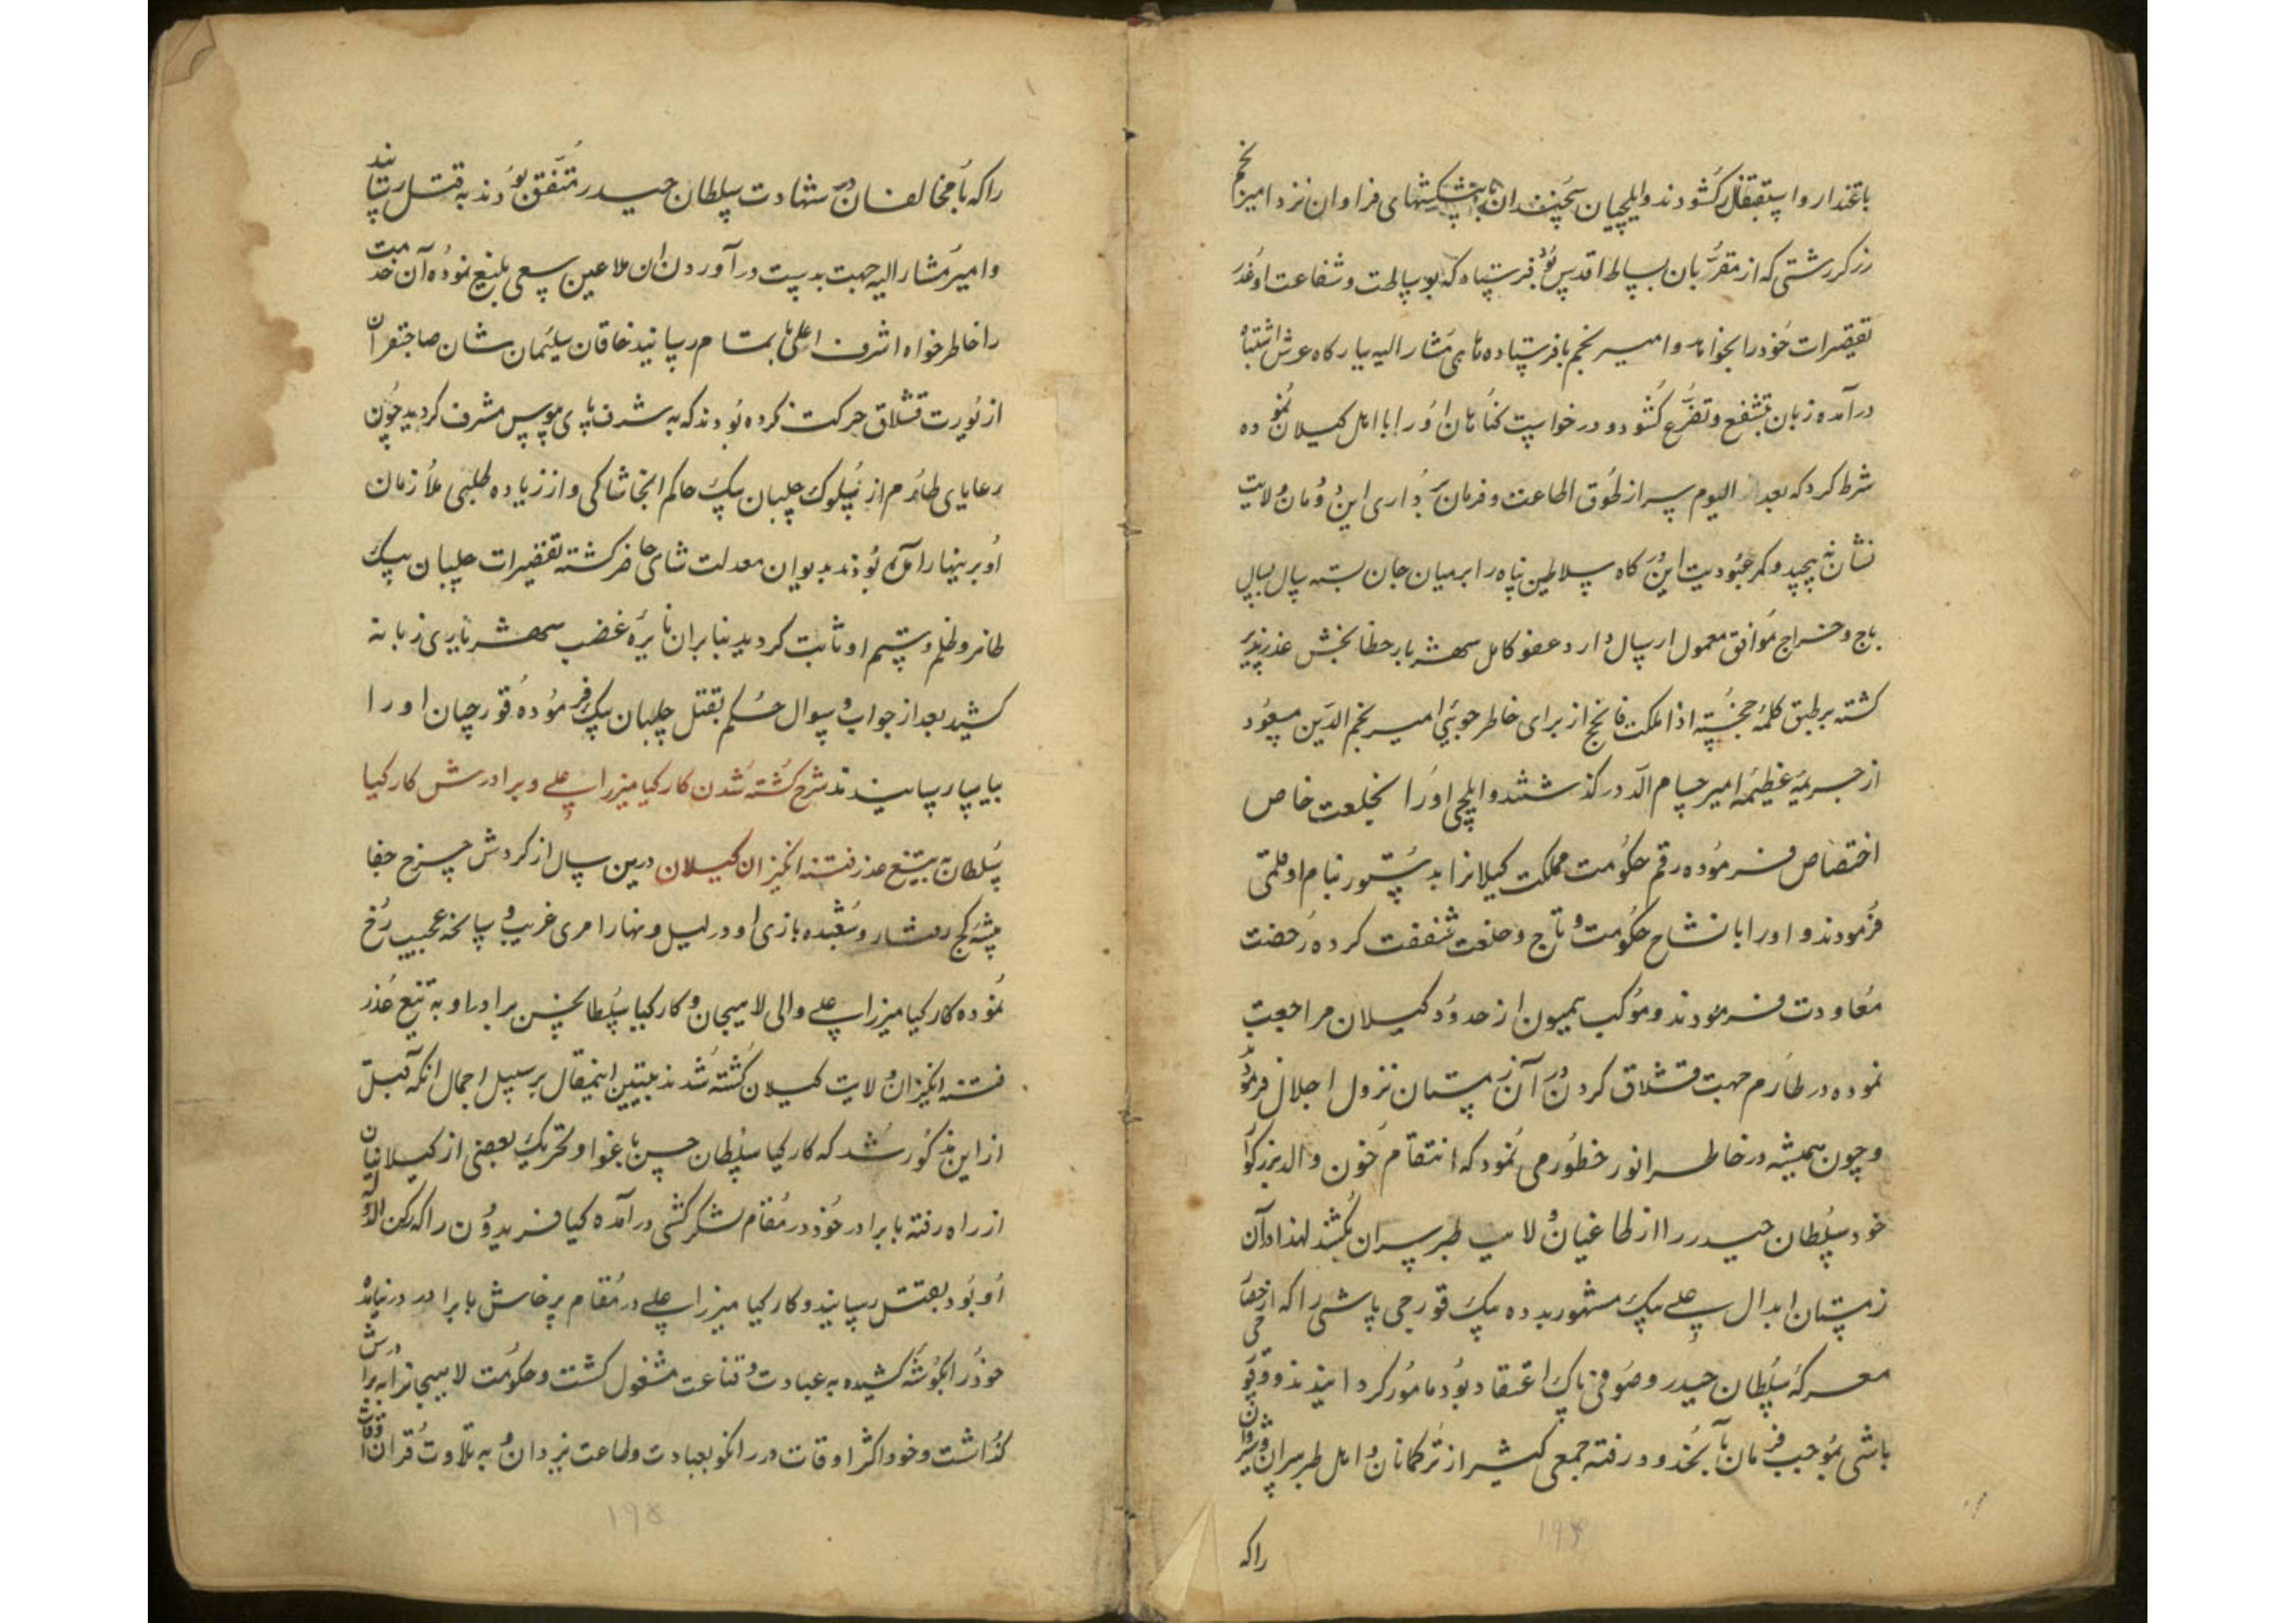 باعتذار و استقبال کشودند و ایلچیان سخندان با پیشکشهای فراوان نزد امیر نجم
زرکر رشتی که از مقربان بساط اقدس بود فرستاد که بوساطت و شفاعت او عذر
تقصیرات خود را بخواهد و امیر نجم با فرستاده های مشار الیه ببارکاه عرش اشتباه
درآمده زبان بتشفع و تضرع کشود و درخواست کناهان او را با اهل کیلان نموده
شرط کرد که بعد الیوم سر از طوق اطاعت و فرمان برداری این دودمان ولایت
نشان نه پیچید و کمر عبودیت این درکاه سلاطین پناه را بر میان جان بسته سال بسال
باج و خراج موافق معمول ارسال دارد عفو کامل شهریار خطابخش عذر پذیر
کشته بر طبق کلمه خجسته اذا ملکت فانجح از برای خاطر جویی امیر نجم الدین مسعود
از جریمه عظیمه امیر حسام الد درکذشتند و ایلچی او را بخلعت خاص
اختصاص فرموده رقم حکومت مملکت کیلانرا بدستور بنام او قلمی
فرمودند و او را با نشان حکومت و تاج و خلعت شفقت کرده رخصت
معاودت فرمودند و موکب همیون از حدود کیلان مراجعت
نموده در طارم جهت قشلاق کردن در آن زمستان نزول اجلال فرمود
و چون همیشه در خاطر انور خطور می نمود که انتقام خون والد بزرکوار
خود سلطان حیدر را از طاغیان ولایت طبرسران بکشد لهذا در آن
زمستان ابدال علی بیک مشهور بدده بیک قورچی باشی را که از
معرکه سلطان حیدر و صوفی پاک اعتقاد بود مامور کردانیدند و قورچی
باشی بموجب فرمان بآنحدود رفته جمعی کثیر از ترکمانان و اهل طبرسران و شیروان
راکه
راکه با مخالفان در شهادت سلطان حیدر متفق بودند به قتل رسانید
و امیر مشار الیه جهت بدست درآوردن ان ملاعین سعی بلیغ نموده آن خدمت
را خاطر خواه اشرف اعلی با تمام رسانید خاقان سلیمان شان صاحبقران
از یورت قشلاق حرکت نکرده بودند که به شرف پای بوس مشرف کردید چون
رعایای طارم از سلوک چلبان بیک حاکم انجا شاکی و از زیاده طلبی ملازمان
او بزینهار آمده بودند بدیوان معدلت شاهی حاضر کشته تقصیرات چلبان بیک
ظاهر و ظلم و ستم او ثابت کردید بنابران نایره غضب شهریاری زبانه
کشید بعد از جواب و سوال حکم بقتل چلبان بیک فرموده قورچیان او را
بیاسا رسانیدند شرح کشته شدن کارکیا میرزا علی و برادرش کارکیا
سلطان به تیغ عذر فتنه انکیزان کیلان درین سال از کردش چرخ جفا
پیشه کج رفتار و شعبده بازی او در لیل و نهار امری غریب و سانحه عجیب رخ
نموده کارکیا میرزا علی والی لاهیجان و کارکیا سلطان حسن برادر او به تیغ عذر
فتنه انکیزان ولایت کیلان کشته شدند تبیین اینمقال بر سبیل اجمال انکه قبل
از این مذکور شد که کارکیا سلطان حسن باغوا و تحریک بعضی از کیلانیان
از راه رفته با برادر خود در مقام لشکر کشی درآمده کیا فریدون را که رکن الدوله
او بود بقتل رسانید و کارکیا میرزا علی در مقام پرخاش با برادر در نیامده
خود را بکوشه کشیده به عبادت و قناعت مشغول کشت و حکومت لاهیجانرا به برادرش
کذاشت و خود اکثر اوقات در رانکو بعبادت و طاعت یزدان و به تلاوت قران اوقات
۱۹۴
۱۹۵